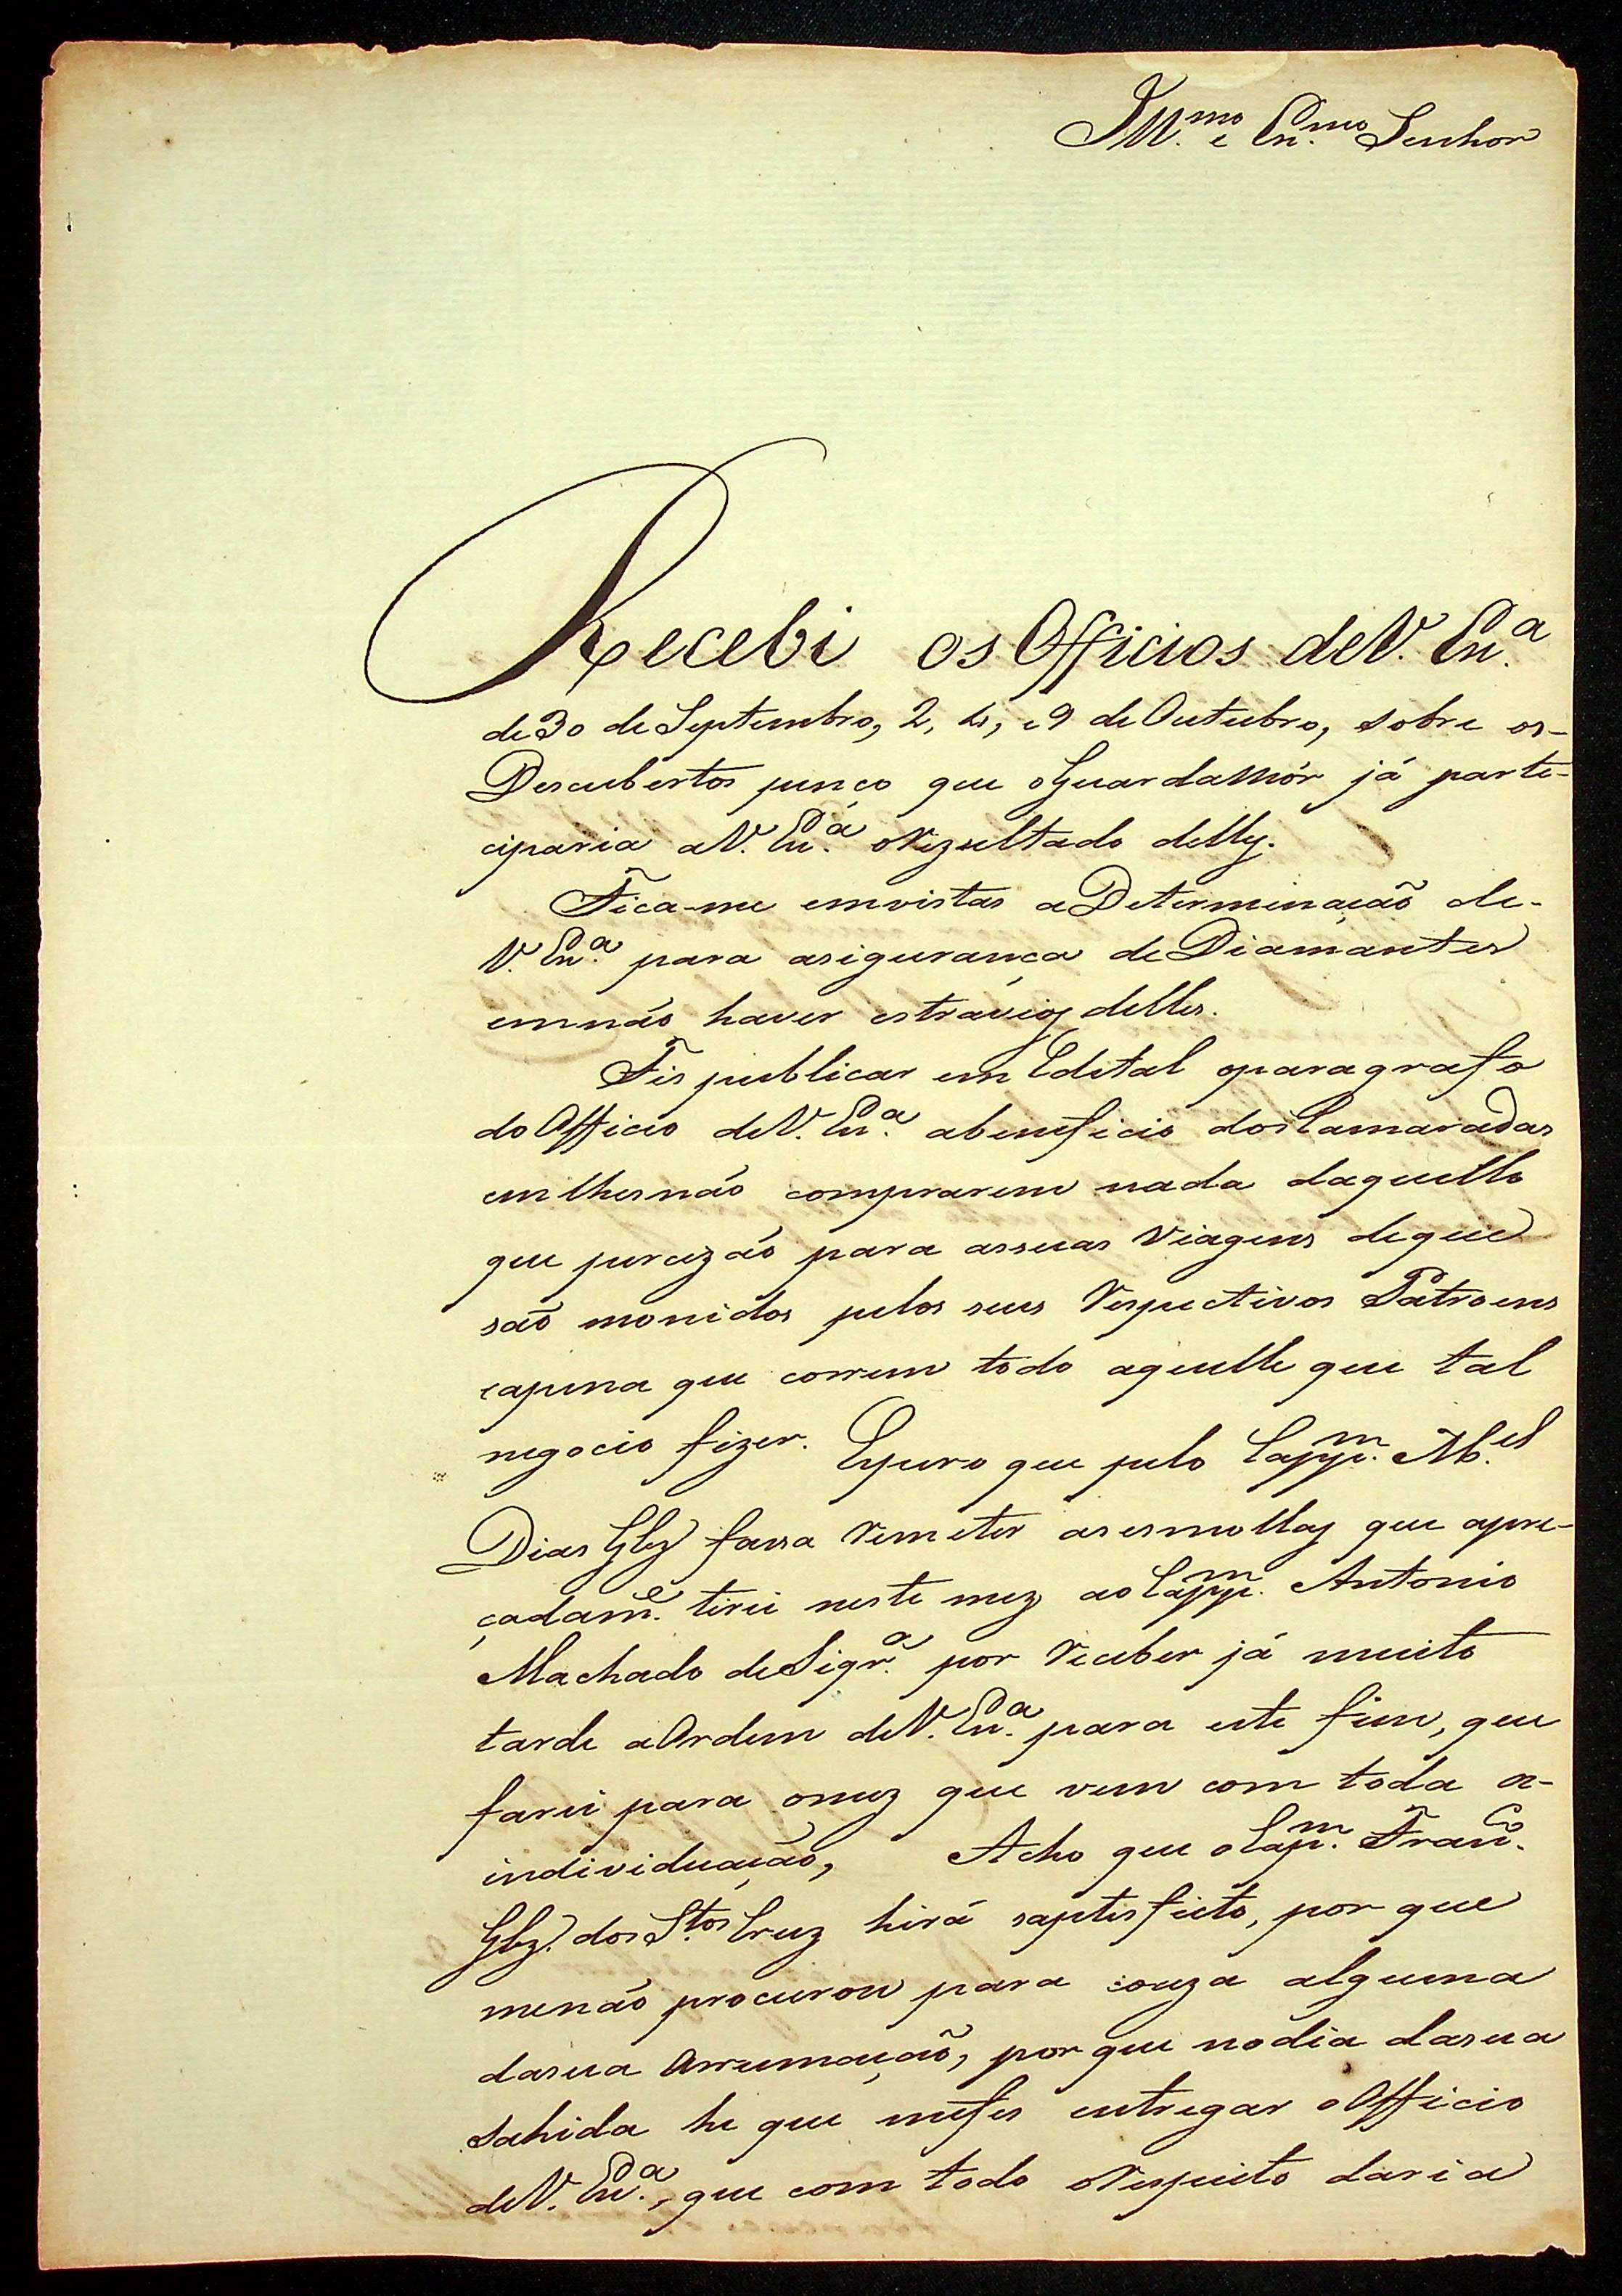 Ill.mo e Ex.mo Senhor
Recebi os Officios de V. Ex.a
de 30 de Septembro, 2, 4, e 9 de Outubro, sobre os-
Descubertos penço que o Guarda Mór já parte-
ciparia a V. Ex.a o Rezultado delles.
Fica-me em vistas a Determinação de-
V. Ex.a para a sigurança de Diamantes
em não haver estravios delles.
Fis publicar em Edital o paragrafo
do Officio de V. Ex.a a beneficio dos Camaradas
em lhes não comprarem nada daquello
que percizão para as suas Viagens de que
são monidos pelos seus Respectivos Patroens
e a pena que correm todo aquelle que tal
negocio fizer. Espero que pelo Capp.m M.el
Dias Glz faça Remeter as esmollas que apre-
çadam.e tirei neste mez ao Capp.m Antonio
Machado de Siqr.a por Receber já muito
tarde a Ordem de V. Ex.a para este fim, que
farei para o mez que vem com toda a-
individuação, Acho que o Cap.m Fran.co
Glz. dos S.tos Cruz hirá saptisfeito, por que
me não procurou para couza alguma
da sua Arrumação, por que no dia da sua
Sahida he que me fes entregar o Officio
de V. Ex.a, que com todo o Respeito daria